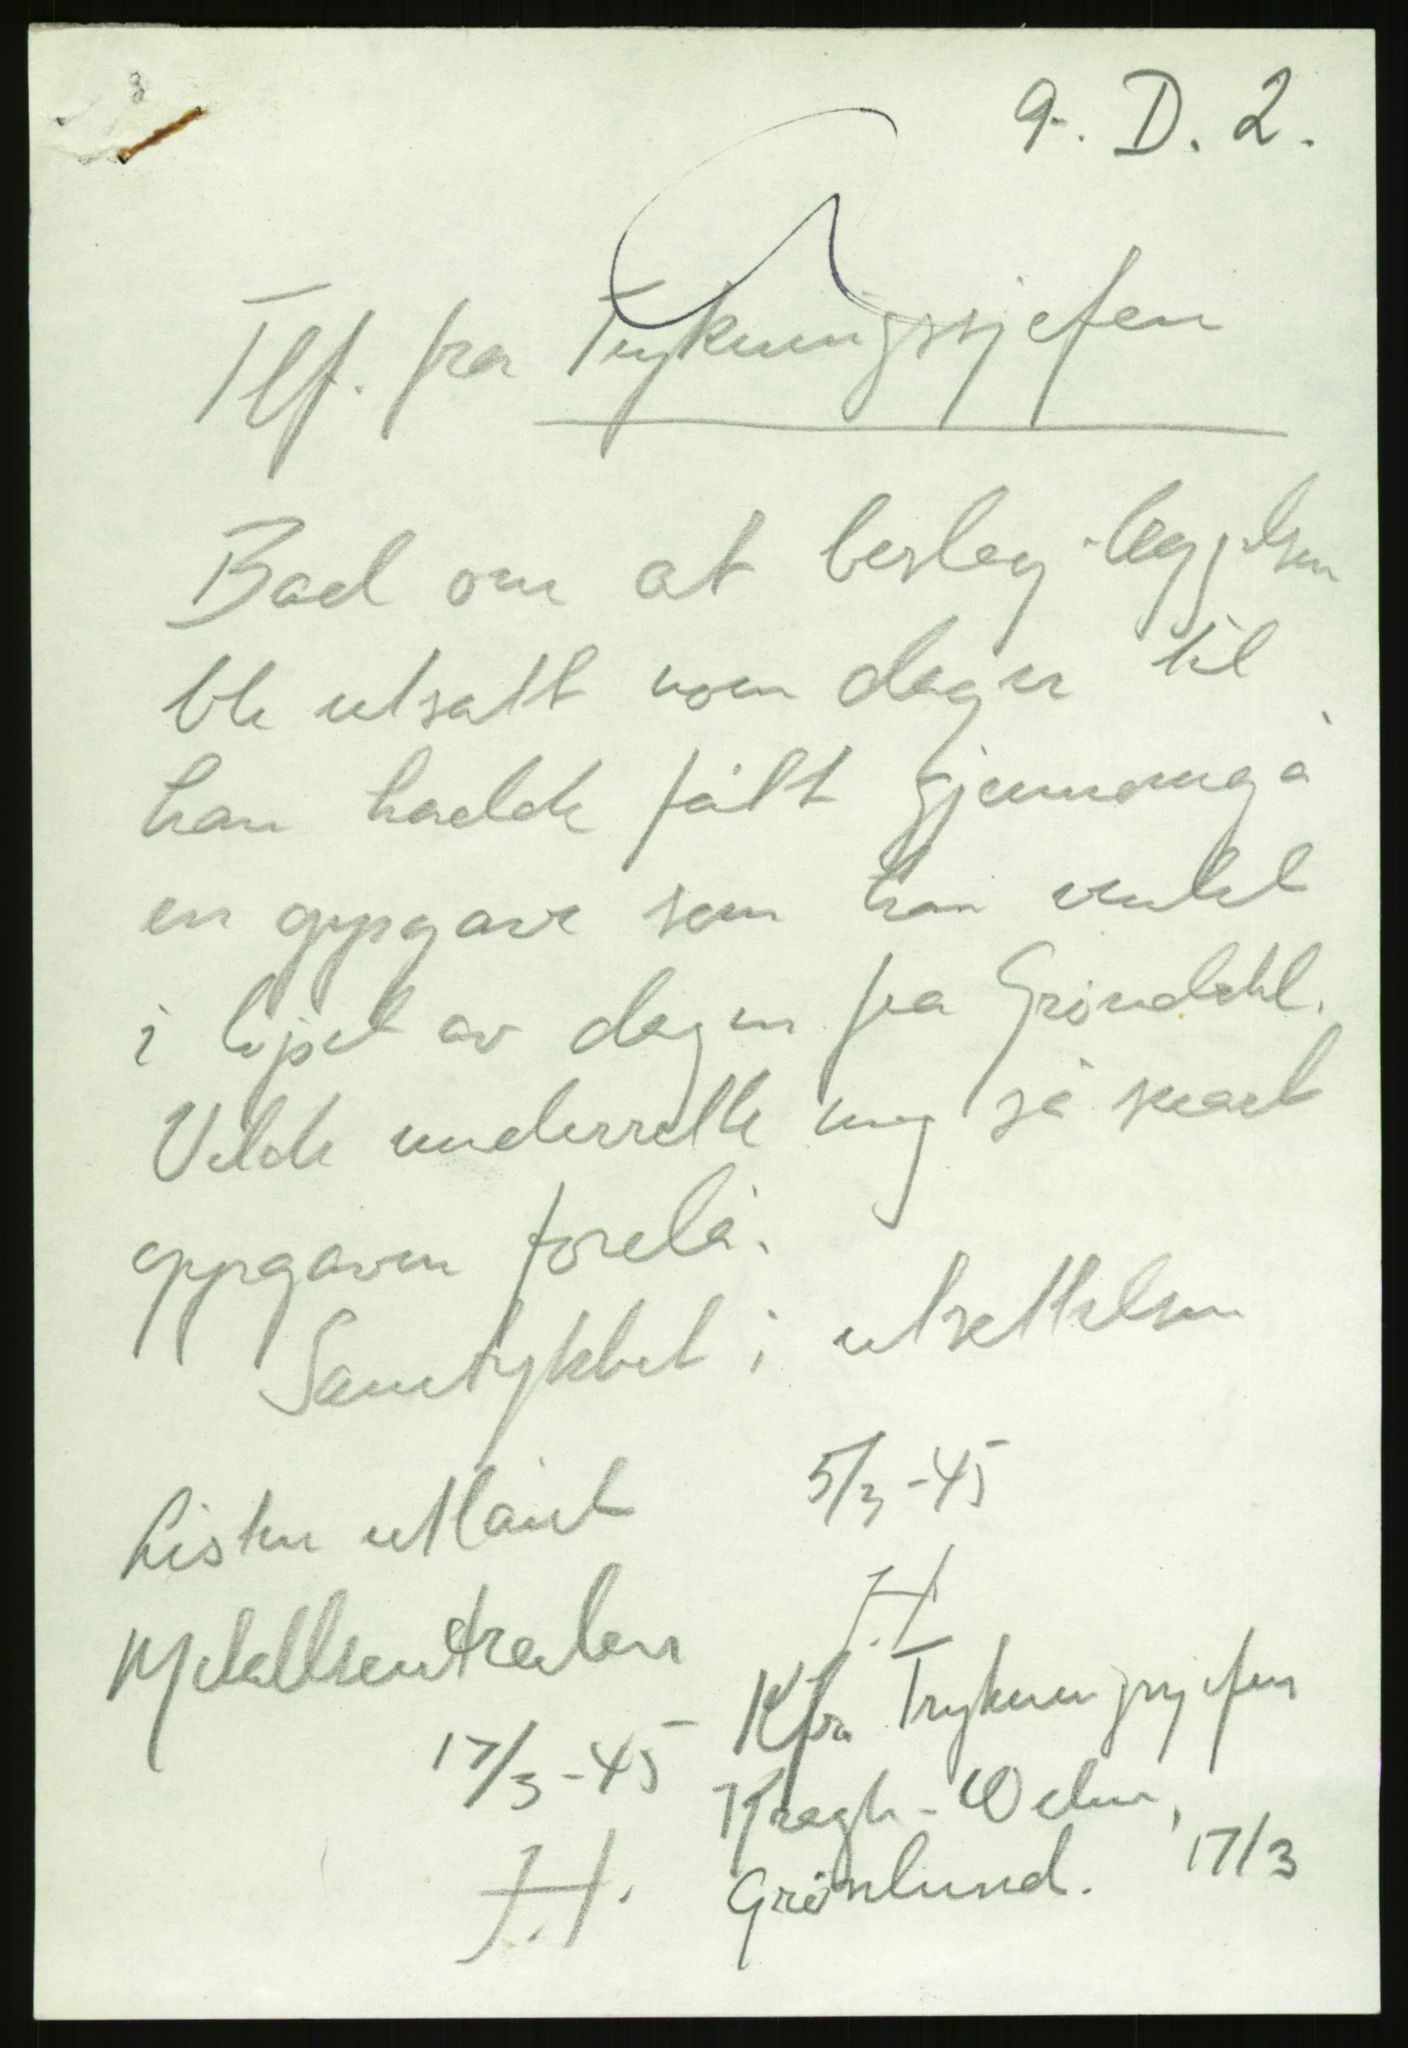 9. D. 2.
Tlf. fra Trykningssjefen
Bad om at beslag-leggelsen
ble utsatt noen dager til
han hadde fått gjennomgå
en oppgave som han ventet
i løpet av dagen fra Grøndahl.
Vilde underrette meg så snart
oppgaven forelå.
Samtykket i utsettelsen
5/3-45
H
Listen utlånt
Metallsentralen
17/3-45
H.
Kfr. Trykningssjefen
Kragh-
Grønlund. 17/3